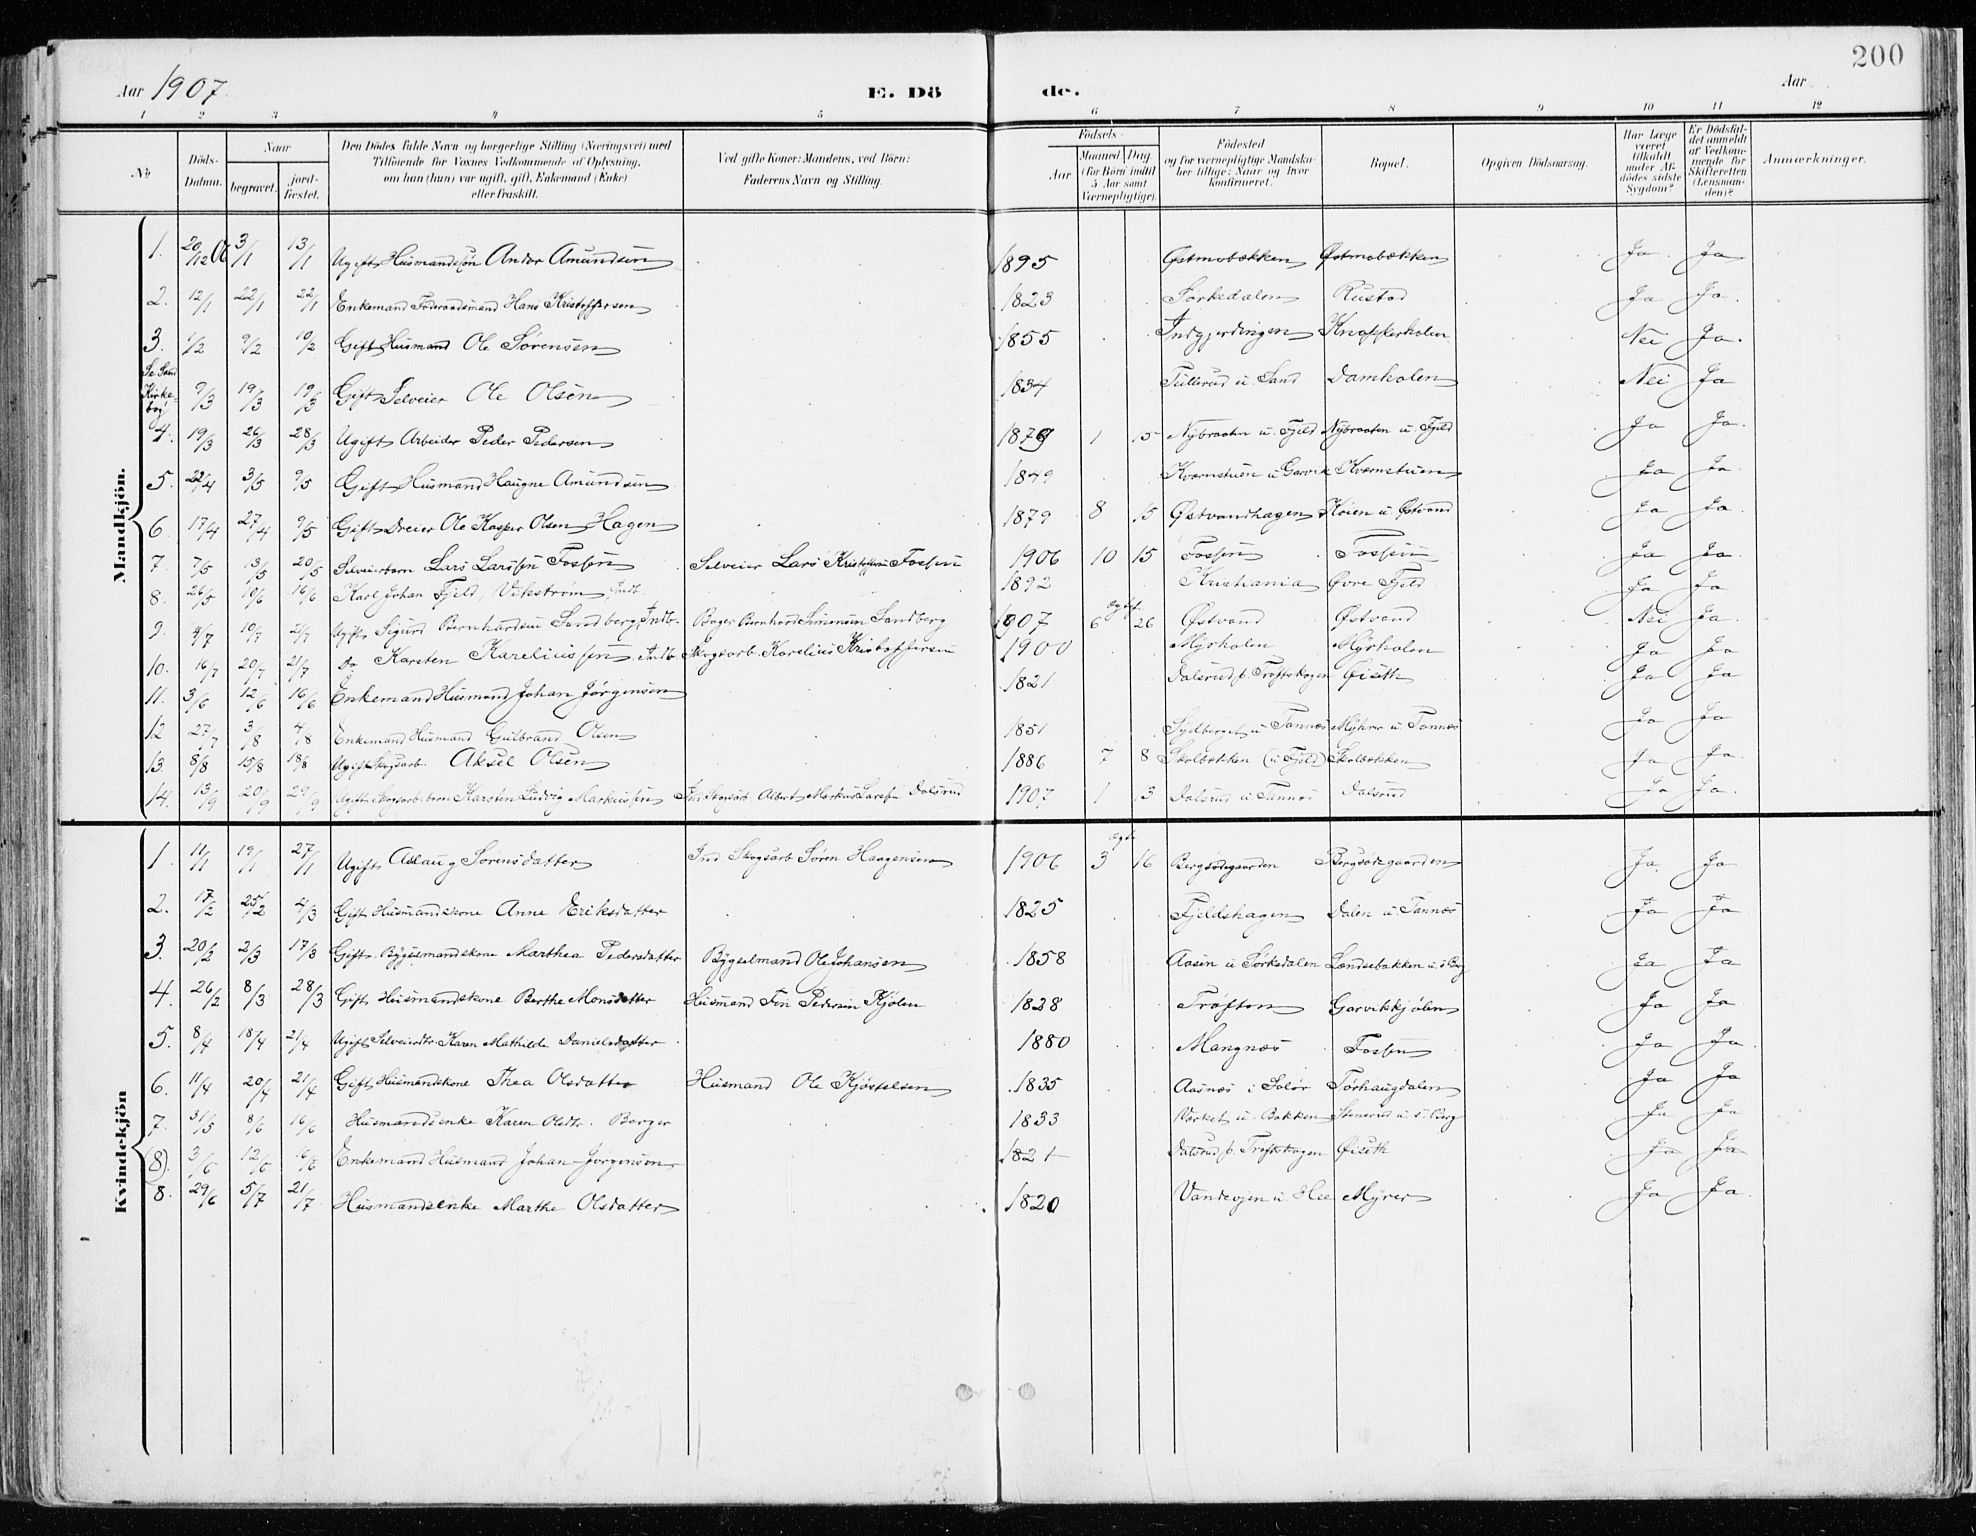 200
Aar 1907. E. Dö de. Aar
1 2 3 4 5 6 7 8 9 10 11 12
No Döds-Datum. Naar begravet. jordfæstet. Den Dödes fulde Navn og borgerlige Stilling (Næringsvei) med Tilföiende for Voxnes Vedkommende af Oplysning, om han (hun) var ugift, gift, Enkemand (Enke) eller fraskilt. Ved gifte Koner: Mandens, ved Börn: Faderens Navn og Stilling. Födsels- Aar Maaned Dag (for Börn indtil 5 Aar samt Værnepligtige). Födested og for værnepligtige Mandskaber tillige: Naar og hvor konfirmeret. Bopæl. Opgiven Dödsaarsag. Har Læge været tilkaldt under Afdödes sidste Sygdom? Er Dödsfaldet anmeldt af Vedkommende for Skifteretten (Lensmanden)? Anmærkninger.
Mandkjön.
1. 20/12 06 3/1 13/1 Ugift Husmandssøn Andor Amundsen 1895 Østmobækken Østmobækken Ja Ja
2. 12/1 22/1 22/1 Enkemand Föderaadsmand Hans Kristoffersen 1823 Sorkedalen Rustad Ja Ja.
3. 1/2 9/2 10/2 Gift Husmand Ole Sørensen 1855 Indgjerdingen Knapperholen Nei Ja.
Se Sand Kirkebog! 9/3 19/3 19/3 Gift Selveier Ole Olsen 1834 Tullerud u. Sand Damholen Nei Ja
4. 19/3 26/3 28/3 Ugift Arbeider Peder Pedersen 1879 1 15 Nybraaten u. Fjeld Nybraaten u. Fjeld Ja Ja.
5. 22/4 3/5 9/5 Gift Husmand Haugne Amundsen 1849 Kvernstuen u Garvik Kværnstuen Ja Ja.
6. 17/4 27/4 9/5 Gift Dreier Ole Kasper Olsen Hagen 1879 8 15 Østvandhagen Koien u. Østvand Ja Ja.
7. 7/5 13/5 20/5 Selveierbarn Lars Larssen Fossen Selveier Lars Kristoffersen Fossen 1906 10 15 Fossen Fossen Ja Ja
8. 26/5 10/6 16/6 Karl Johan Fjeld, Vikstrom, Indb. 1892 Kristiania Øvre Fjeld Ja Ja
9. 4/7 10/7 21/7 Ugift Sigurd Bernhardsen Sandberg, Indb. Bager Bernhard Simensen Sandberg 1907 6 26 Østvand Østvand Nei Ja.
10. 16/7 20/7 21/7 Do Karsten Kareliussen, Indb. Skogsarb. Karelius Kristoffersen 1900 Myrholen Myrholen Ja Ja
11. 3/6 12/6 16/6 Enkemand Husmand Johan Jørgensen 1821 Dalsrud p. Trøftskogen Øiseth Ja Ja
12 27/7 3/8 4/8 Enkemand Husmand Gulbrand Olsen 1851 Sydberget u Tannæs Myhrer u Tannæs Ja Ja
13. 8/8 15/8 18/8 Ugift Skogsarb. Aksel Olsen 1886 7 8 Skolbækken (u Fjeld) Skolbækken Ja Ja.
14. 13/9 20/9 29/9 Ugift Skogsarb. barn Karsten Ludvig Markussen Ind. Skogsarb Albert Markus Larssen Dalsrud 1907 1 3 Dalsrud u Tannæs Dalsrud Ja Ja.
Kvindekjön
1. 11/1 19/1 27/1 Ugift Aslaug Sørensdatter Ind Skogsarb Søren Haagensen 1906 3 16 Bergsødegaarden Bergsødegaarden Ja. Ja
2. 17/2 25/2 4/3 Gift Husmandskone Anne Eriksdatter 1825 Fjeldshagen Dalen u. Tannæs Ja Ja
3. 20/2 2/3 17/3 Gift. Bygselmandskone Marthea Pedersdatter Bygselmand Ole Johansen 1858 Aasen u Sørkedalen Lændsebakken u. s Berg Ja Ja
4. 26/2 8/3 28/3 Gift Husmandskone Berthe Monsdatter Husmand Fin Pedersen Kjølen 1828 Trøften Garvikkjølen Ja Ja
5. 8/4 18/4 21/4 Ugift Selveierdtr. Karen Mathilde Danielsdatter 1880 Mangnæs Fossen Ja Ja.
6. 11/4 20/4 21/4 Gift Husmandskone Thea Olsdatter Husmand Ole Kjøstelsen 1835 Aasnæs i Solør Torhaugdalen Ja Ja
7. 31/5 8/6 16/6 Husmandsenke Karen Olsdtr. Berger 1833 Værket u. Bakken Stenerud u. s. Berg Ja Ja
(8). 3/6 12/6 16/6 Enkemand Husmand Johan Jørgensen 1821 Dalsrud p. Trøftskogen Øiseth Ja Ja
8. 29/6 5/7 21/7 Husmandsenke Marthe Olsdatter 1820 Vandvejen u Hee Myrer Ja Ja.